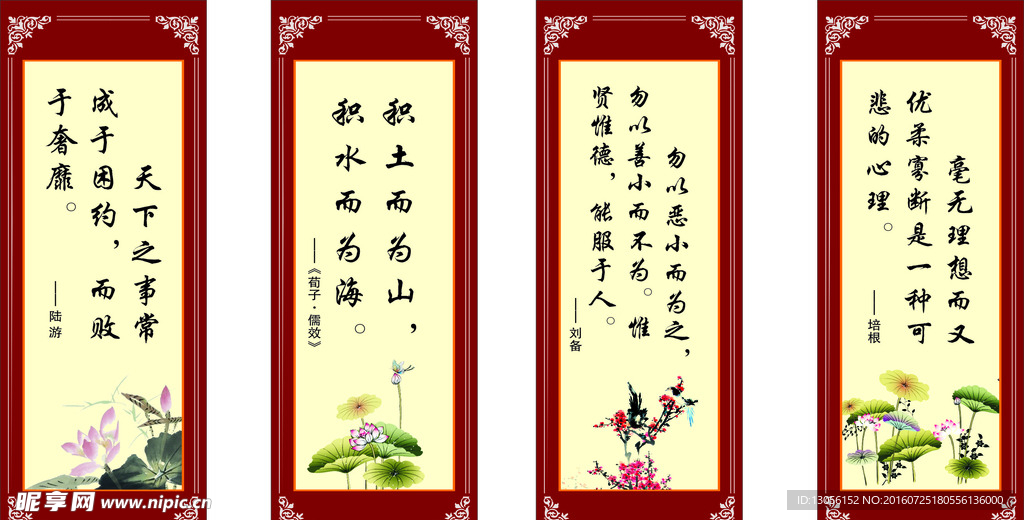 天下之事常
成于困约，而败
于奢靡。
——陆游
积土而为山，
积水而为海。
——《荀子·儒效》
勿以恶小而为之，
勿以善小而不为。惟
贤惟德，能服于人。
——刘备
毫无理想而又
优柔寡断是一种可
悲的心理。
——培根
昵享网 www.nipic.cn
ID:13056152 NO:20160725180556136000